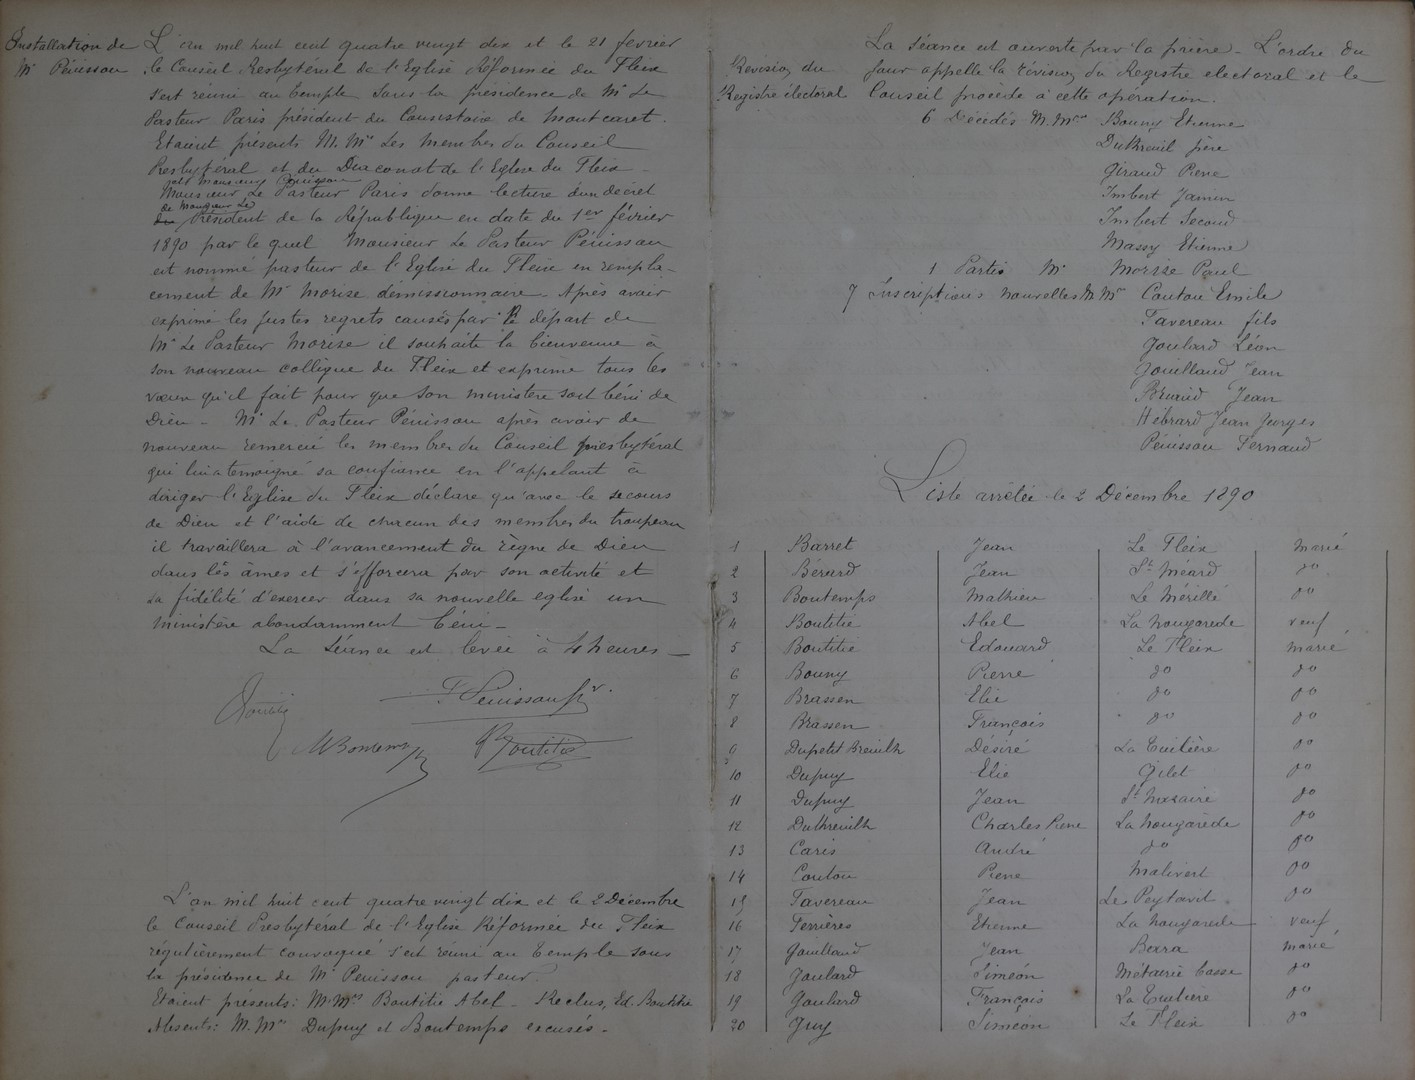 Installation de
Mr Pénissou
L'an mil huit cent quatre vingt dix et le 21 février
le Conseil Presbytéral de l'Eglise Réformée du Fleix
s'est réuni au temple sous la présidence de Mr Le
Pasteur Paris président du Consistoire de Montcaret.
Etaient présents M.Mrs Les membres du Conseil
Presbytéral et du Diaconat de l'Eglise du Fleix _
Monsieur Le Pasteur Paris donne lecture d'un décret
de Monsieur Le
Président de la République en date du 1er février
1890 par le quel Monsieur Le Pasteur Pénissou
est nommé pasteur de l'Eglise du Fleix en rempla-
cement de Mr Morize démissionnaire. Après avoir
exprimé les justes regrets causés par le départ de
Mr Le Pasteur Morize il souhaite la bienvenue à
son nouveau collègue du Fleix et exprime tous les
voeux qu'il fait pour que son ministère soit béni de
Dieu _ Mr Le Pasteur Pénissou après avoir de
nouveau remercié les membres du Conseil presbytéral
qui lui a temoigné sa confiance en l'appelant à
diriger l'Eglise du Fleix déclare qu'avec le secours
de Dieu et l'aide de chacun des membres du troupeau
il travaillera à l'avancement du règne de Dieu
dans les âmes et s'efforcera par son activité et
sa fidélité d'exercer dans sa nouvelle eglise un
ministère abondamment béni _
La séance est levée à 4 heures _
F. Penissou
Boutitie
L'an mil huit cent quatre vingt dix et le 2 Décembre
le Conseil Presbytéral de l'Eglise Réformée du Fleix
régulièrement convoqué s'est réuni au temple sous
la présidence de Mr Penissou pasteur.
Etaient présents: M.Mrs Boutitie Abel _ Reclus, Ed. Boutitie
Absents: M.Mrs Dupuy et Boutemps excusés _
La séance est ouverte par la prière _ L'ordre du
Révision du
Registre électoral
jour appelle la révision du Registre electoral et le
Conseil procède à cette opération.
6 Décédés M.Mrs Bouny Etienne
DuBreuil père
Giraud Pierre
Imbert Jamin
Imbert Second
Massy Etienne
1 Partis Mr Morize Paul
7 Inscriptions nouvelles M.Mrs Coutou Emile
Favereau fils
Goulard Léon
Gouilland Jean
Jean
Hébrard Jean Jorges
Pénissou Fernand
Liste arrêtée le 2 Décembre 1890
1 Barret Jean Le Fleix marié
2 Bérard Jean St Méard do
3 Boutemps Mathieu Le Mérillé do
4 Boutitie Abel La nougarède veuf
5 Boutitie Edouard Le Fleix marié
6 Bouny Pierre do do
7 Brassen Elie do do
8 Brassen François do do
9 Dupetit Breuilh Désiré La Tuilière do
10 Dupuy Elie Gilet do
11 Dupuy Jean St Nazaire do
12 DuBreuilh Charles Pierre La Nougarède do
13 Caris André do do
14 Coutou Pierre Malivert do
15 Favereau Jean Le Peytavit do
16 Ferrières Etienne La Nougarède veuf
17 Gouilland Jean marié
18 Goulard Siméon Métairie basse do
19 Goulard François La Tuilière do
20 Guy Siméon Le Fleix do